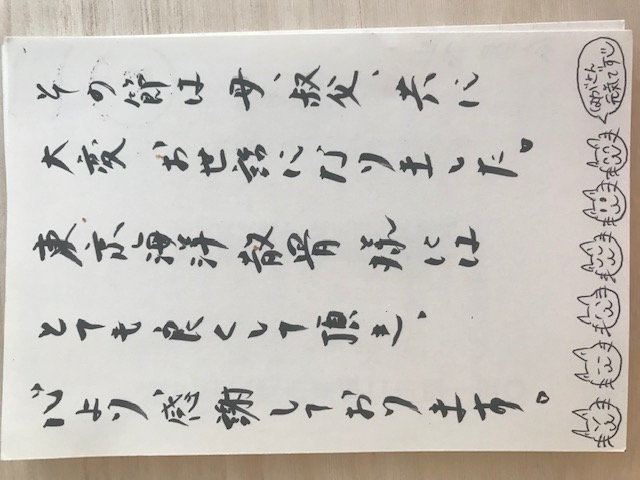 その節は 母、叔父、共に
大変 お世話になりました。
東京海洋散骨 様には
とても良くして頂き、
心より感謝しております。
元気です